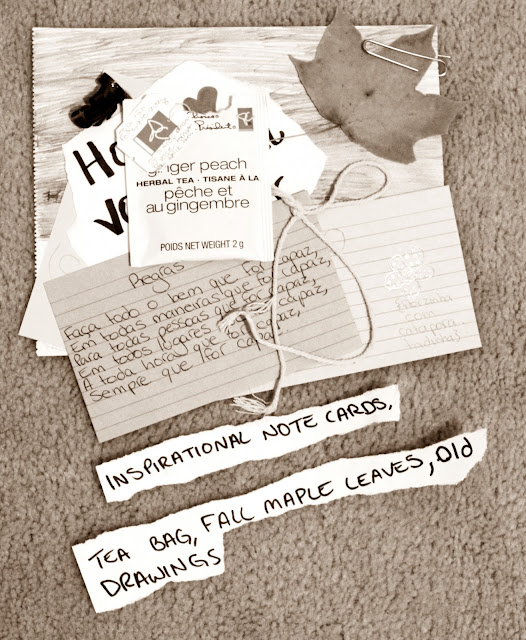 Ho
vo
President's
ginger peach
HERBAL TEA - TISANE À LA
pêche et
au gingembre
POIDS NET WEIGHT 2 g
Regras
Faça todo o bem que for capaz,
Em todas maneiras que for capaz,
Para todas pessoas que for capaz,
Em todos lugares que for capaz,
A toda hora que for capaz,
Sempre que for capaz,
com
INSPIRATIONAL NOTE CARDS,
TEA BAG, FALL MAPLE LEAVES, Old
DRAWINGS